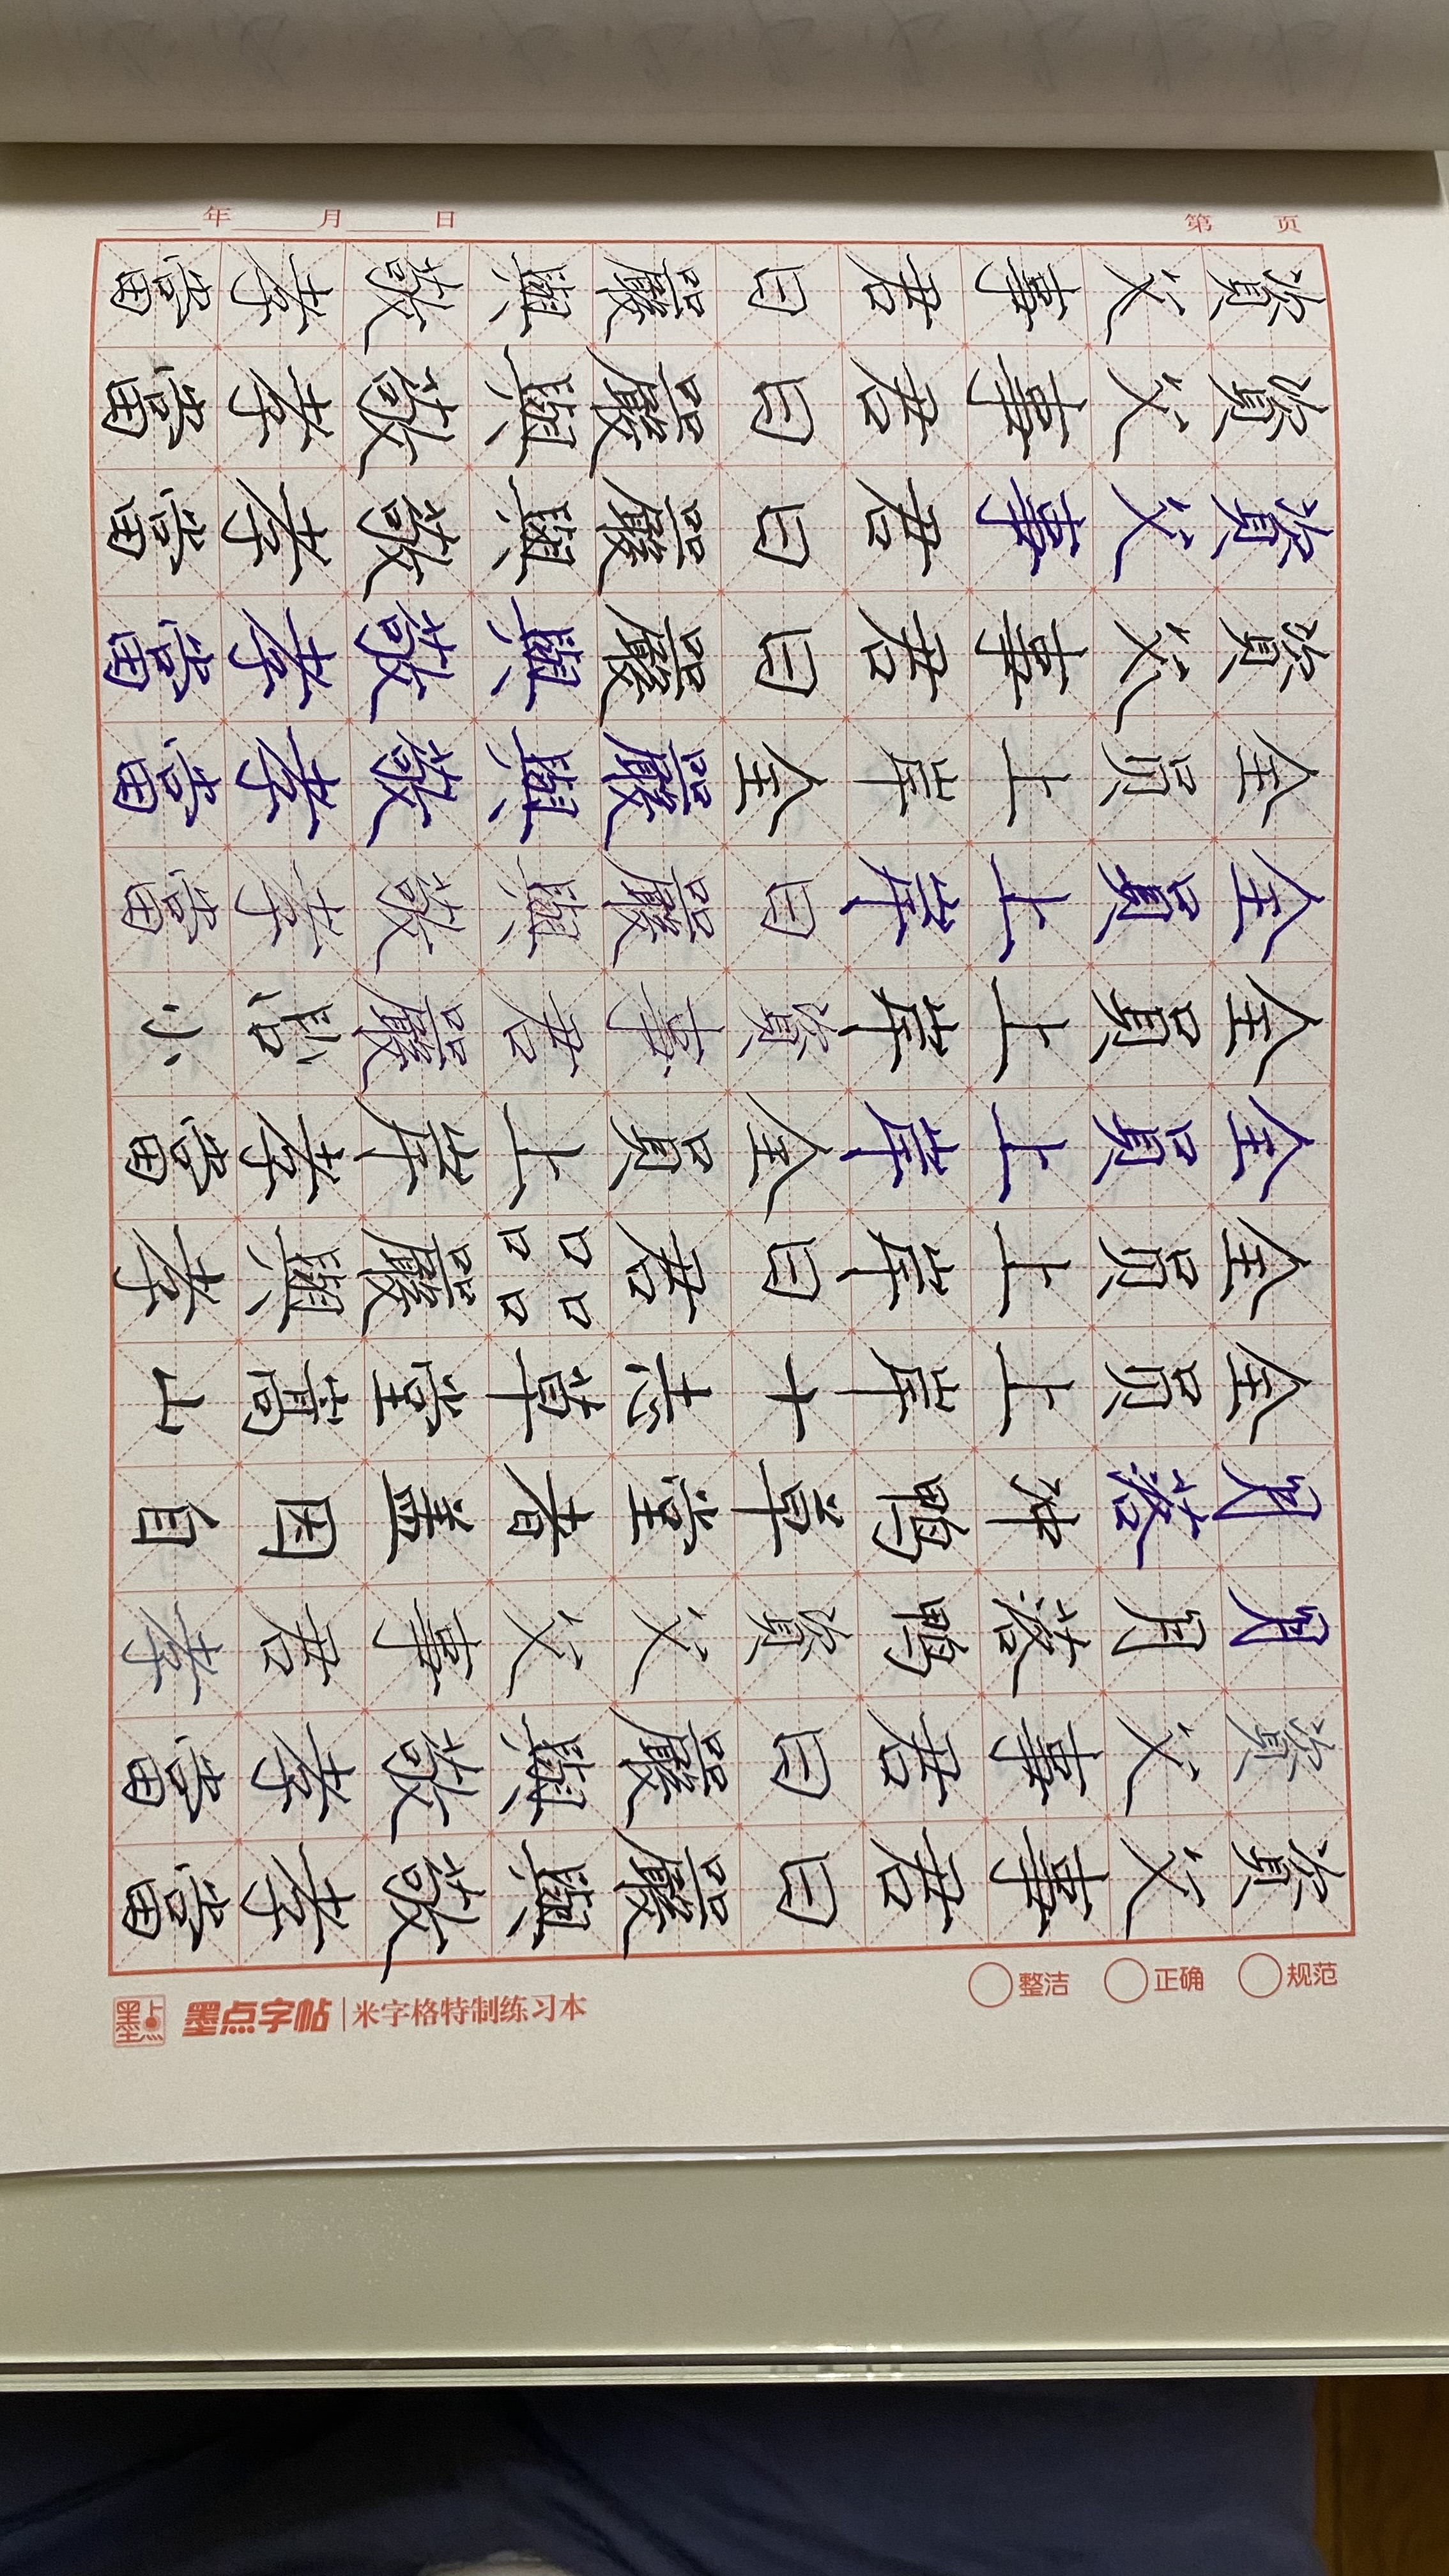 資父事君曰嚴與敬孝當
資父事君曰嚴與敬孝當
資父事君曰嚴與敬孝當
資父事君曰嚴與敬孝當
全員上岸全嚴與敬孝當
全員上岸曰嚴與敬孝當
全員上岸資事君嚴小
全員上岸全員上岸孝當
全員上岸曰君口口口口嚴與孝
全員上岸十志草堂山
月落神鴨草堂者蓋因自
月月落鴨資父父事君孝
資父事君曰嚴與敬孝當
資父事君曰嚴與敬孝當
年 月 日 第 页
整洁 正确 规范
墨点 墨点字帖 | 米字格特制练习本